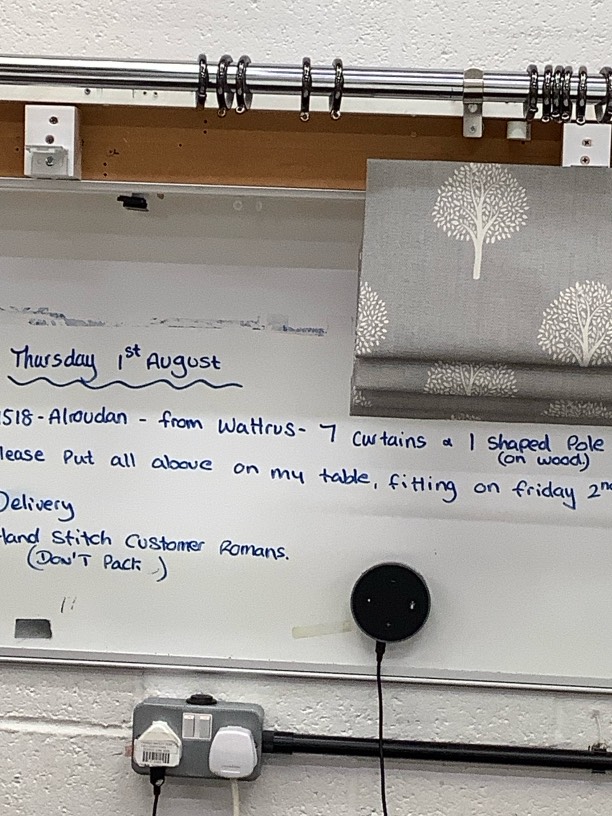 Thursday 1st August
1518 - Alroudan - from Wattrus - 7 curtains & 1 shaped Pole
(on wood.)
lease Put all above on my table, fitting on friday 2nd
Delivery
Hand Stitch Customer Romans.
(DON'T Pack)